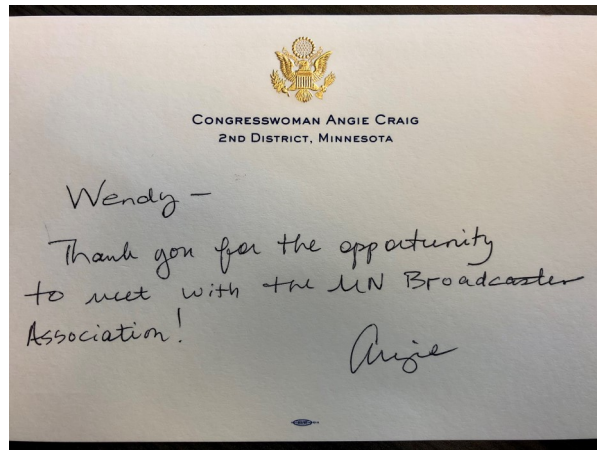 CONGRESSWOMAN ANGIE CRAIG
2ND DISTRICT, MINNESOTA
Wendy –
Thank you for the opportunity
to meet with the MN Broadcaster
Association!
Angie